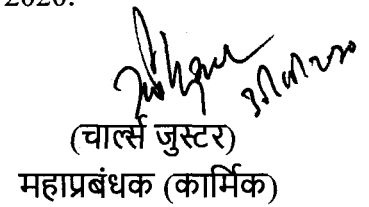 2020.
(चार्ल्स जुस्टर)
महाप्रबंधक (कार्मिक)